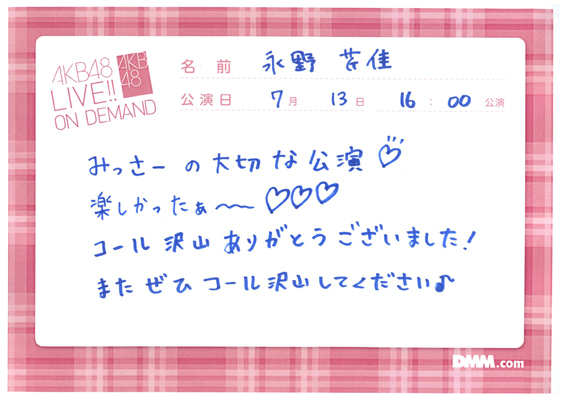 AKB48
LIVE!!
ON DEMAND
AKB
48
名前 永野 芹佳
公演日 7月 13日 16:00 公演
みっさーの大切な公演♡
楽しかったぁ〜〜♡♡♡
コール沢山ありがとうございました!
またぜひコール沢山してください♪
DMM.com